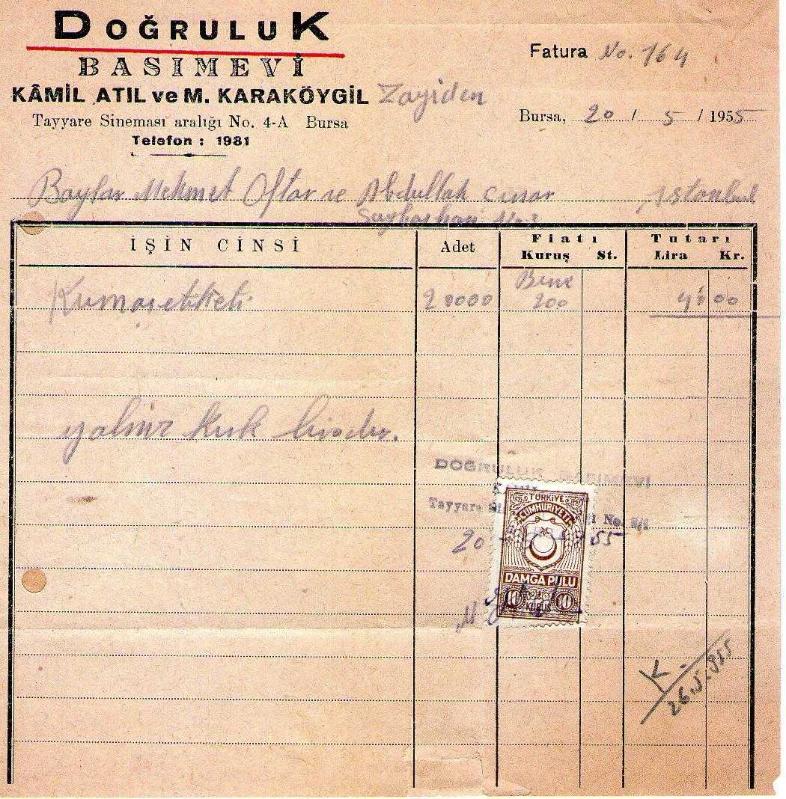 DOĞRULUK
BASIMEVİ
KÂMİL ATIL ve M. KARAKÖYGİL
Tayyare Sineması aralığı No. 4-A Bursa
Telefon : 1981
Zayiden
Fatura No. 164
Bursa, 20 / 5 / 1955
Baylar Mehmet Oftar ve Abdullah Cınar İstanbul
İŞİN CİNSİ Adet Fiatı Kuruş St. Tutarı Lira Kr.
Kumaş etiketi 20000 Bine 200 40 00
yalnız kırk liradır.
DOĞRULUK BASIMEVİ
Tayyare
20 55
TÜRKİYE
CUMHURİYETİ
DAMGA PULU
10 KURUŞ 10
K.
26.5.955